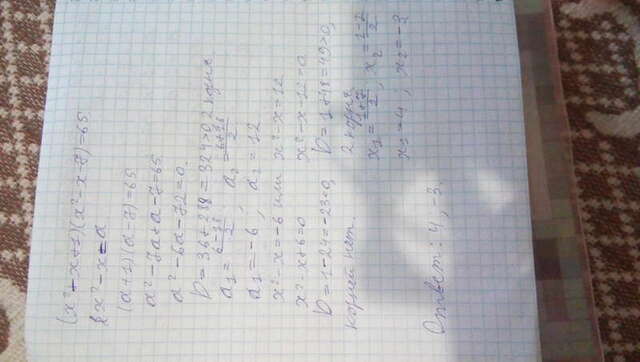 (x²-x+1)(x²-x-7)=65
x²-x=a
(a+1)(a-7)=65
a²-7a+a-7=65
a²-6a-72=0.
D=36+288=324>0, 2 корня
a₁=\frac{6-18}{2}, a₂=\frac{6+18}{2}
a₁=-6, a₂=12
x²-x=-6 или x²-x=12
x²-x+6=0 x²-x-12=0
D=1-24=-23<0, D=1+48=49>0,
корней нет. 2 корня
x₁=\frac{1+7}{2}, x₂=\frac{1-7}{2}
x₁=4; x₂=-3
Ответ: 4, -3.